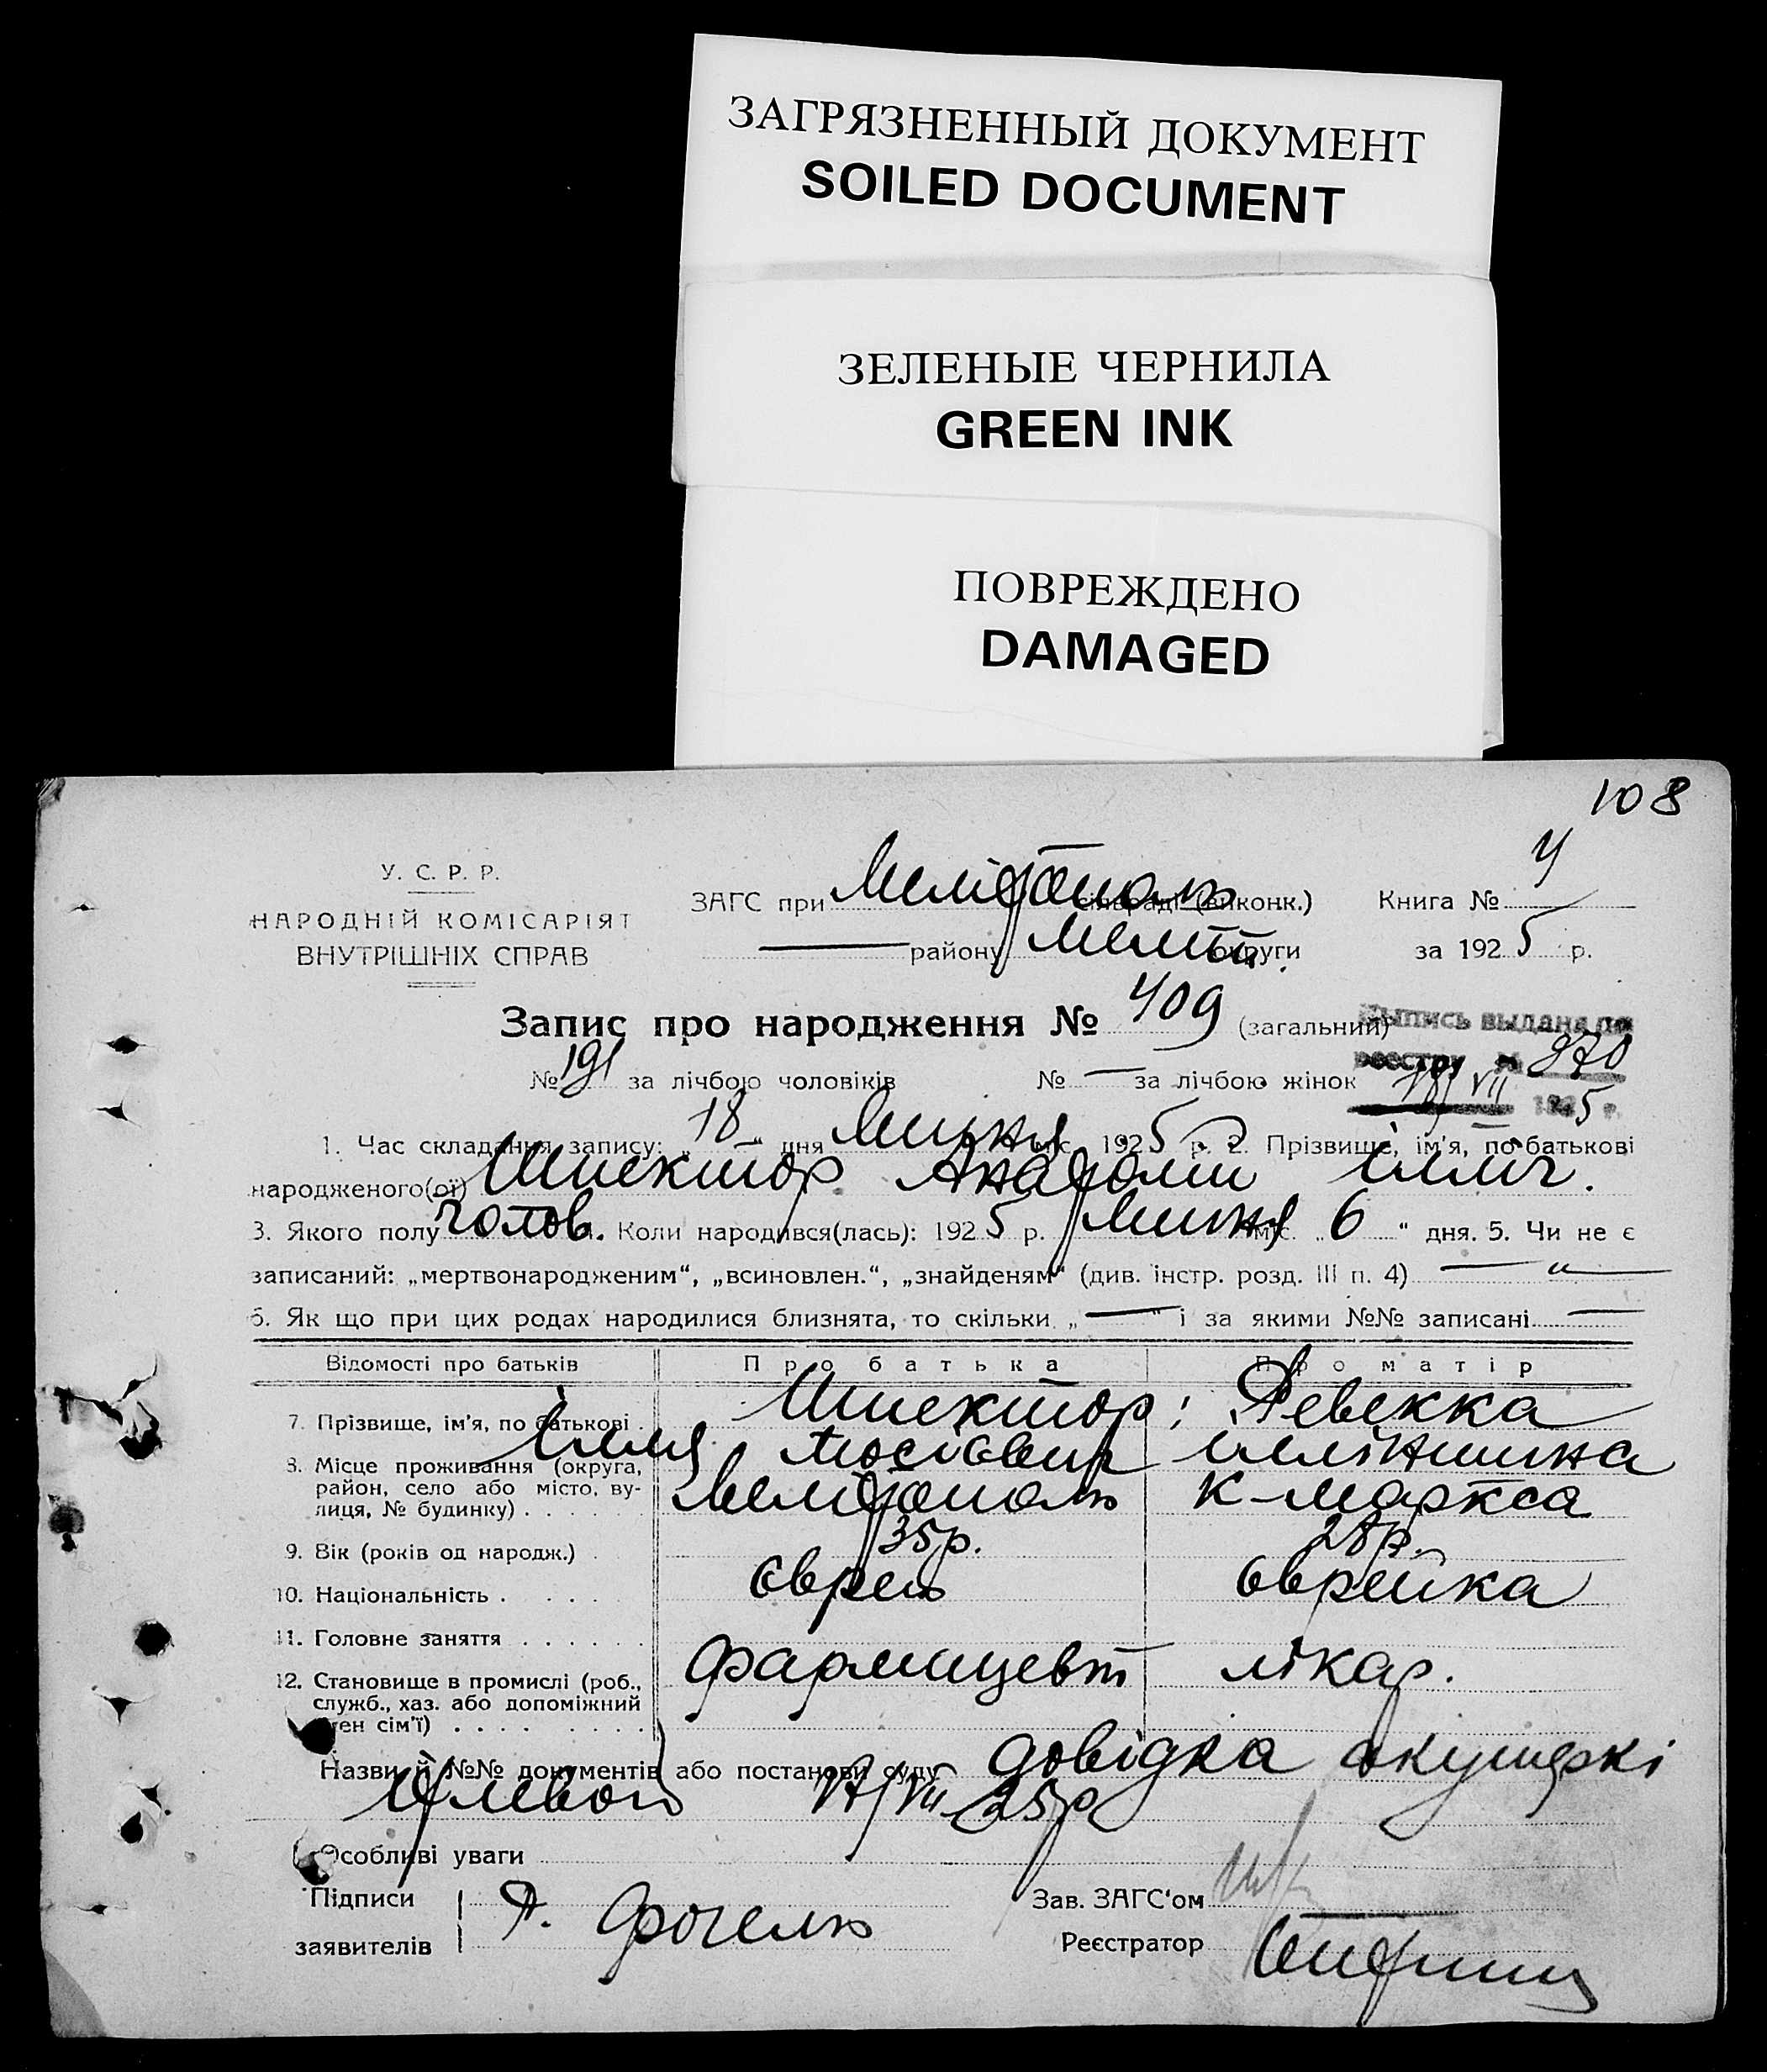 ЗАГРЯЗНЕННЫЙ ДОКУМЕНТ
SOILED DOCUMENT
ЗЕЛЕНЫЕ ЧЕРНИЛА
GREEN INK
ПОВРЕЖДЕНО
DAMAGED
108
У. С. Р. Р.
НАРОДНІЙ КОМІСАРІЯТ
ВНУТРІШНІХ СПРАВ
ЗАГС при Мелітополь сільраді (виконк.) Книга №
— району Меліт. округи за 1925 р.
Запис про народження № 409 (загальний)
Выпись выдана по
реестру № 970
18/VII 1925 г.
№ 191 за лічбою чоловіків № — за лічбою жінок
1. Час складання запису: „18“ дня Липня міс. 1925 р. 2. Прізвище, ім'я, по батькові
народженого(ої) Шпектор Анатолій Ілліч.
3. Якого полу чолов. Коли народився(лась): 1925 р. Липня міс. „6“ дня. 5. Чи не є
записаний: „мертвонародженим“, „всиновлен.“, „знайденям“ (див. інстр. розд. III п. 4) — „ —
6. Як що при цих родах народилися близнята, то скільки „—“ і за якими №№ записані —
Відомості про батьків Про батька Про матір
7. Прізвище, ім'я, по батькові . Шпектор; Ревекка
Ілля Мосієвич Іллінишна
8. Місце проживання (округа,
район, село або місто, ву-
лиця, № будинку) . . . . . . Мелітополь К-Маркса
9. Вік (років од народж.) . 35 р. 28 р.
10. Національність . . . . . Єврей Єврейка
11. Головне заняття . . . . . .
12. Становище в промислі (роб., Фармацевт лікар.
служб., хаз. або допоміжний
член сім'ї) . . . . . . . .
Назви й №№ документів або постанови суду довідка акушерки
VII 25 р
Особливі уваги
Підписи
заявителів Р. Фогель
Зав. ЗАГС'ом
Реєстратор